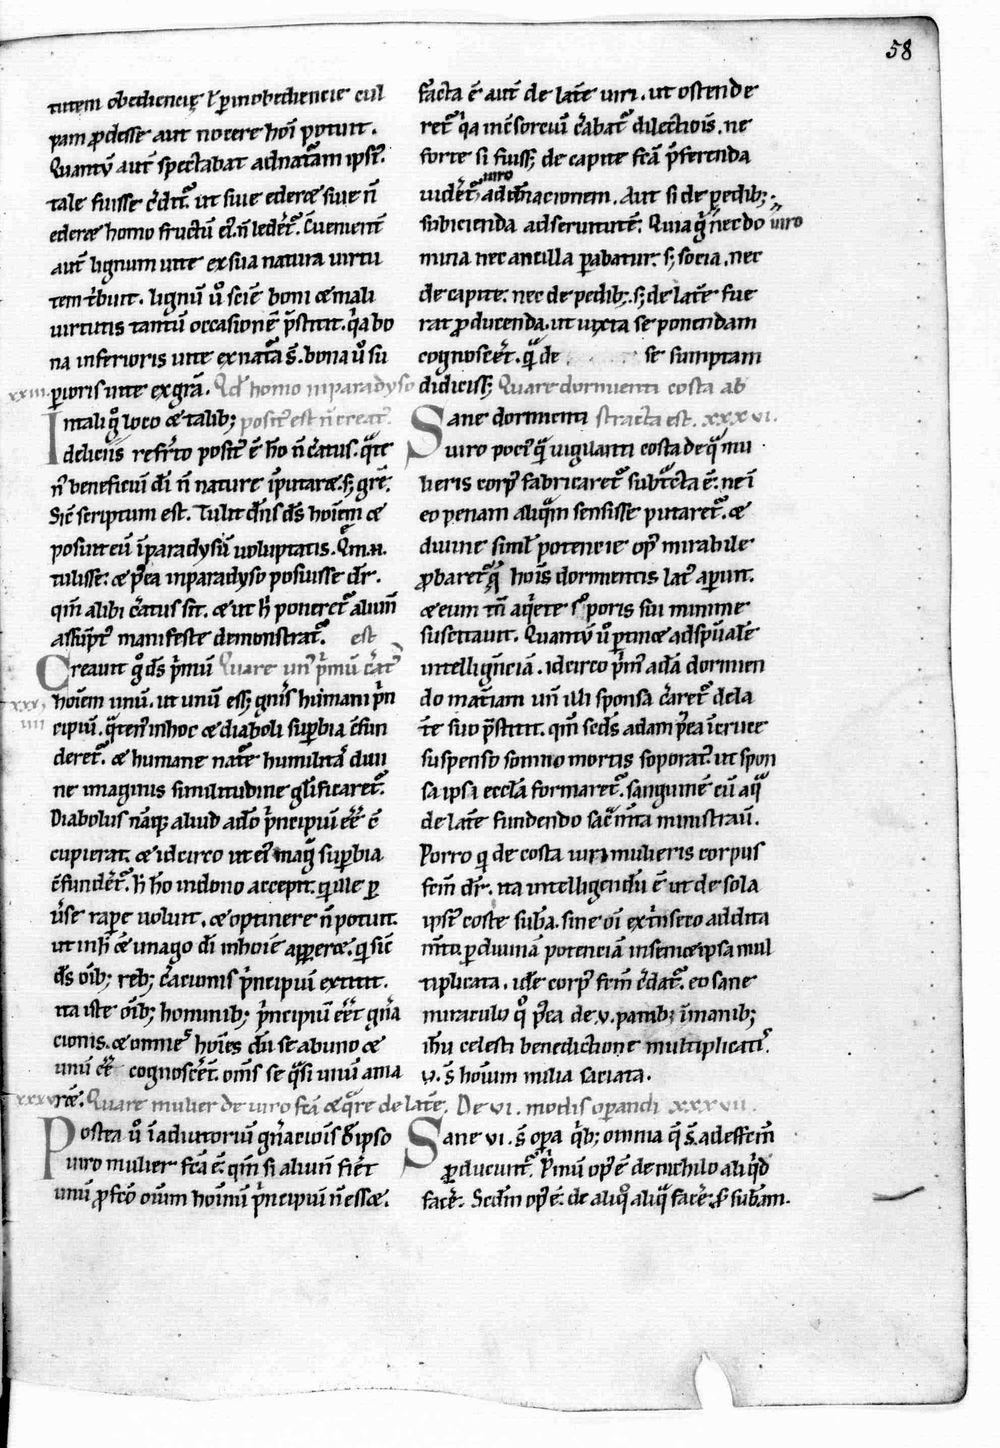 58
tutem obediencię ł p̱ inobediencie cul
pam ꝓdesse aut nocere hoī potuit.
Quantū aut̄ spectabat ad natᷓam ipsiꝰ.
tale fuisse c̄ditᷓ. ut siue ederet siue n̄
ederet homo fructū eiꝰ n̄ ledet᷑. Cuenient̄
aut̄ lignum uite ex sua natura uirtu
tem t̄buit. lignū ů scīe boni et mali
uirtutis tantū occasionē p̄stitit. q̇a bo
na inferioris uite ex natᷓa s̄. bona ů su
xxxiii. p̱ioris uite ex grā. Qd̓ homo in paradyso
In tali g̊ loco et talib; positꝰ est n̄ creatꝰ.
deliciis refr̄to positꝰ ē hō n̄ c̄atus. qᷓte
n̄ beneficiū dī n̄ nature īputaret. s; grē.
Sic̄ scriptum est. Tulit dn̄s dš hoīem et
posuit eū ī paradysū uoluptatis. Qm̄ .n.
tulisse: et p̄ea in paradyso posuisse dr̄.
qm̄ alibi c̄atus sit. et ut h̄ poneret᷑ alium̄
assūptꝰ manifeste demonstrat᷑. est
Creauit g̊ dš p̄mū Quare unꝰ p̄mū c̄atꝰ
xxx, iiii
hoīem unū. ut unū ess; gn̄is humani p̄n
cipiū. qᷓtenꝰ in hoc et diaboli sup̱bia c̄fun
deret᷑. et humane natᷓe humilitā diui
ne imaginis similitudine gl̄ificaret᷑.
Diabolus nāq; aliud a dō p̄ncipiū ēē ē
cupierat. et idcirco ut eiꝰ mag̊ sup̱bia
c̄fundet᷑. h̄ hō in dono accepit. q ille p̱
ů̄se rap̱e uoluit. et optinere n̄ potuit.
ut in h̄ et̄ imago dī in hoīe appareret. q sic̄
dš oīb; reb; c̄acionis p̄ncipiū extitit.
ita iste oīb; hominib; p̄ncipiū eēt gn̄a
cionis. et omneˢ hoīes dū se ab uno et
unū ēē cognoscēt. om̄s se qᷓsi unū ama
xxxv ret̄. Quare mulier de uiro fc̄a et qᷓre de latē.
Postea ů ī adiutoriū gn̄acioīs d̓ ipso
uiro mulier fc̄a ē. qm̄ si aliun̄ fiet̄
unū ꝓfc̄o oīum hoīnū p̄ncipiū n̄ esset.
facta ē aut̄ de latē uiri. ut ostende
ret᷑ q̇a in c̄sorciū c̄abat᷑ dilectiōis. ne
forte si fuiss; de capite fc̄a p̄ferenda
uidet᷑ uiro ad dn̄acionem. Aut si de pedib;
subicienda ad seruitutē. Quia g̊ nec do uiro
mina nec ancilla parabatur. s; socia. nec
de capite: nec de pedib;. s; de latē fue
rat ꝓducenda. ut iuxta se ponendam
cognoscet̄. qᷓ de se sumptam
didiciss; Quare dormienti costa ab
Sane dormienti stracta est. xxxvi.
uiro pociꝰ qᷓ uigilanti costa de qᷓ mu
lieris corpꝰ fabricaret᷑ subtᷓcta ē. ne ī
eo penam aliqᷓm sensisse putaret᷑. et
diuine simł potencie opꝰ mirabile
ꝓbaret᷑ q hoīs dormientis latꝰ ap̱uit.
et eum tn̄ a qete soporis sui minime
suscitauit. Quantū ů p̱tinet ad sp̄ualē
intellign̄ciā. idcirco p̄mꝰ adā dormien
do mat̄iam un̄ illi sponsa c̄aret᷑ de la
tē suo p̄stitit. qm̄ sc̄dš adam p̄ea ī cruce
suspenso somno mortis soporatꝰ. ut spon
sa ipsa eccl̄a formaret᷑. sanguinē cū aqᷓ
de latē fundendo sac̄m̄ta ministraū.
Porro q de costa uiri mulieris corpus
fc̄m dr̄. ita intelligendū ē ut de sola
ipsiꝰ coste sub̄a. sine oī ext̄nseco addita
m̄to. p̱ diuinā potenciā in semet ipsa mul
tiplicata. idē corpꝰ fc̄m c̄dat᷑. eo sane
miraculo q̊ p̄ea de .v. panib; ī manib;
ih̄u celesti benedictione multiplicatiꝰ.
v. s̄ hoīum milia saciata.
De vi. modis op̱andi xxxvii.
Sane vi. s̄ op̱a q̇b; omnia q̄ s̄. ad effc̄m
p̱ducunt᷑. P̄mū opꝰ ē de nichilo aliq̇d
facē. Sc̄dm opꝰ ē. de aliq̊ aliqᷓ facē: s̄ sub̄am.